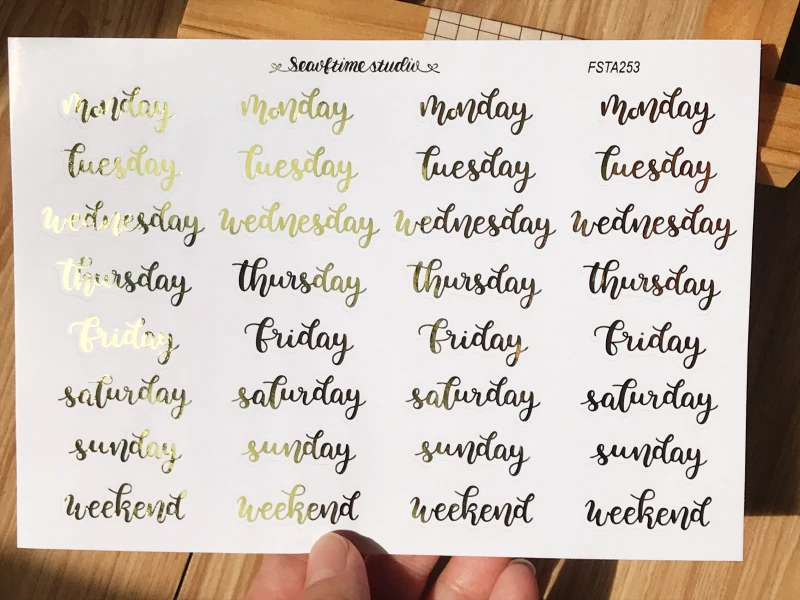 Seaoftime studio FSTA253
monday monday monday monday
tuesday tuesday tuesday tuesday
wednesday wednesday wednesday wednesday
thursday thursday thursday thursday
friday friday friday friday
saturday saturday saturday saturday
sunday sunday sunday sunday
weekend weekend weekend weekend